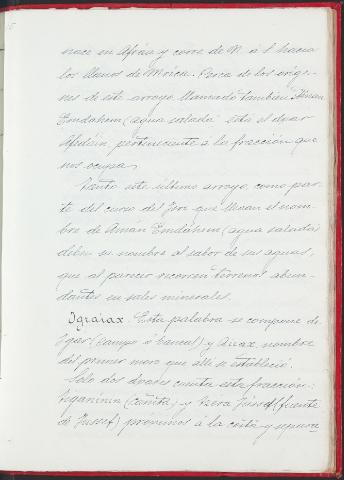 nace en Afráu y corre de N. á S. hacia
los llanos de Mórca. Cerca de los oríge-
nes de este arroyo llamado también Amán
Emdáhem (agua salada) está el duar
perteneciente á la fracción que
nos ocupa.
Tanto este último arroyo, como par-
te del curso del que llevan el nom-
bre de Amán Emdáhem (agua salada)
deben su nombre al sabor de sus aguas,
que al parecer recorren terrenos abun-
dantes en sales minerales.
Igraiax. Esta palabra se compone de
Iguer (campo ó bancal) y Aiax, nombre
del primer moro que allí se estableció.
Solo dos duares cuenta esta fracción:
(cañita) y Yussef (fuente
de Yussef) próximos á la costa y separa